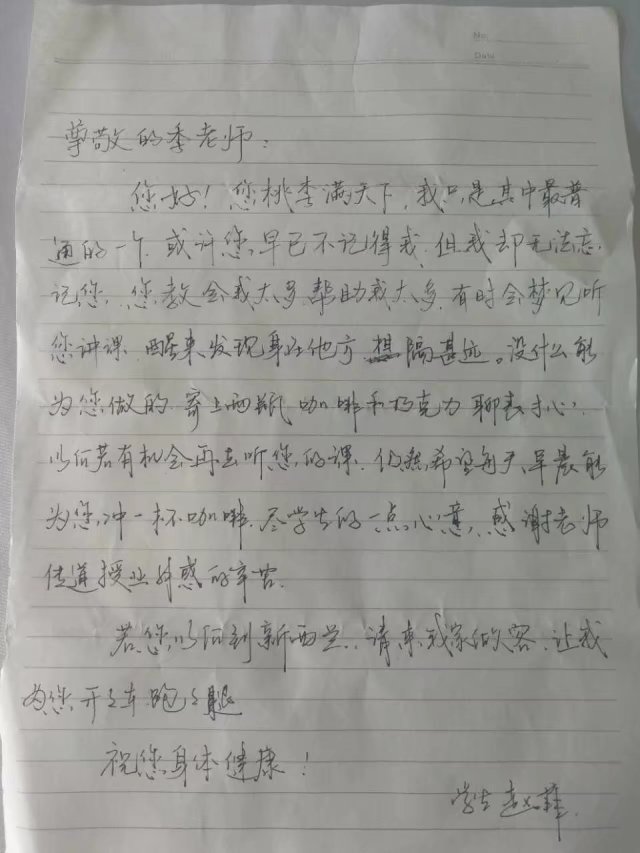 No.
Date
尊敬的季老师:
您好!您桃李满天下,我只是其中最普
通的一个,或许您早已不记得我,但我却无法忘
记您,您教会我太多,帮助我太多,有时会梦见听
您讲课,醒来发现身在他方,相隔甚远。没什么能
为您做的,寄上两瓶咖啡和巧克力聊表寸心,
以后若有机会再去听您的课,仍然希望每天早晨能
为您冲一杯咖啡,尽学生的一点心意,感谢老师
传道授业解惑的辛苦.
若您以后到新西兰,请来我家做客,让我
为您开开车跑跑腿
祝您身体健康!
学生 赵